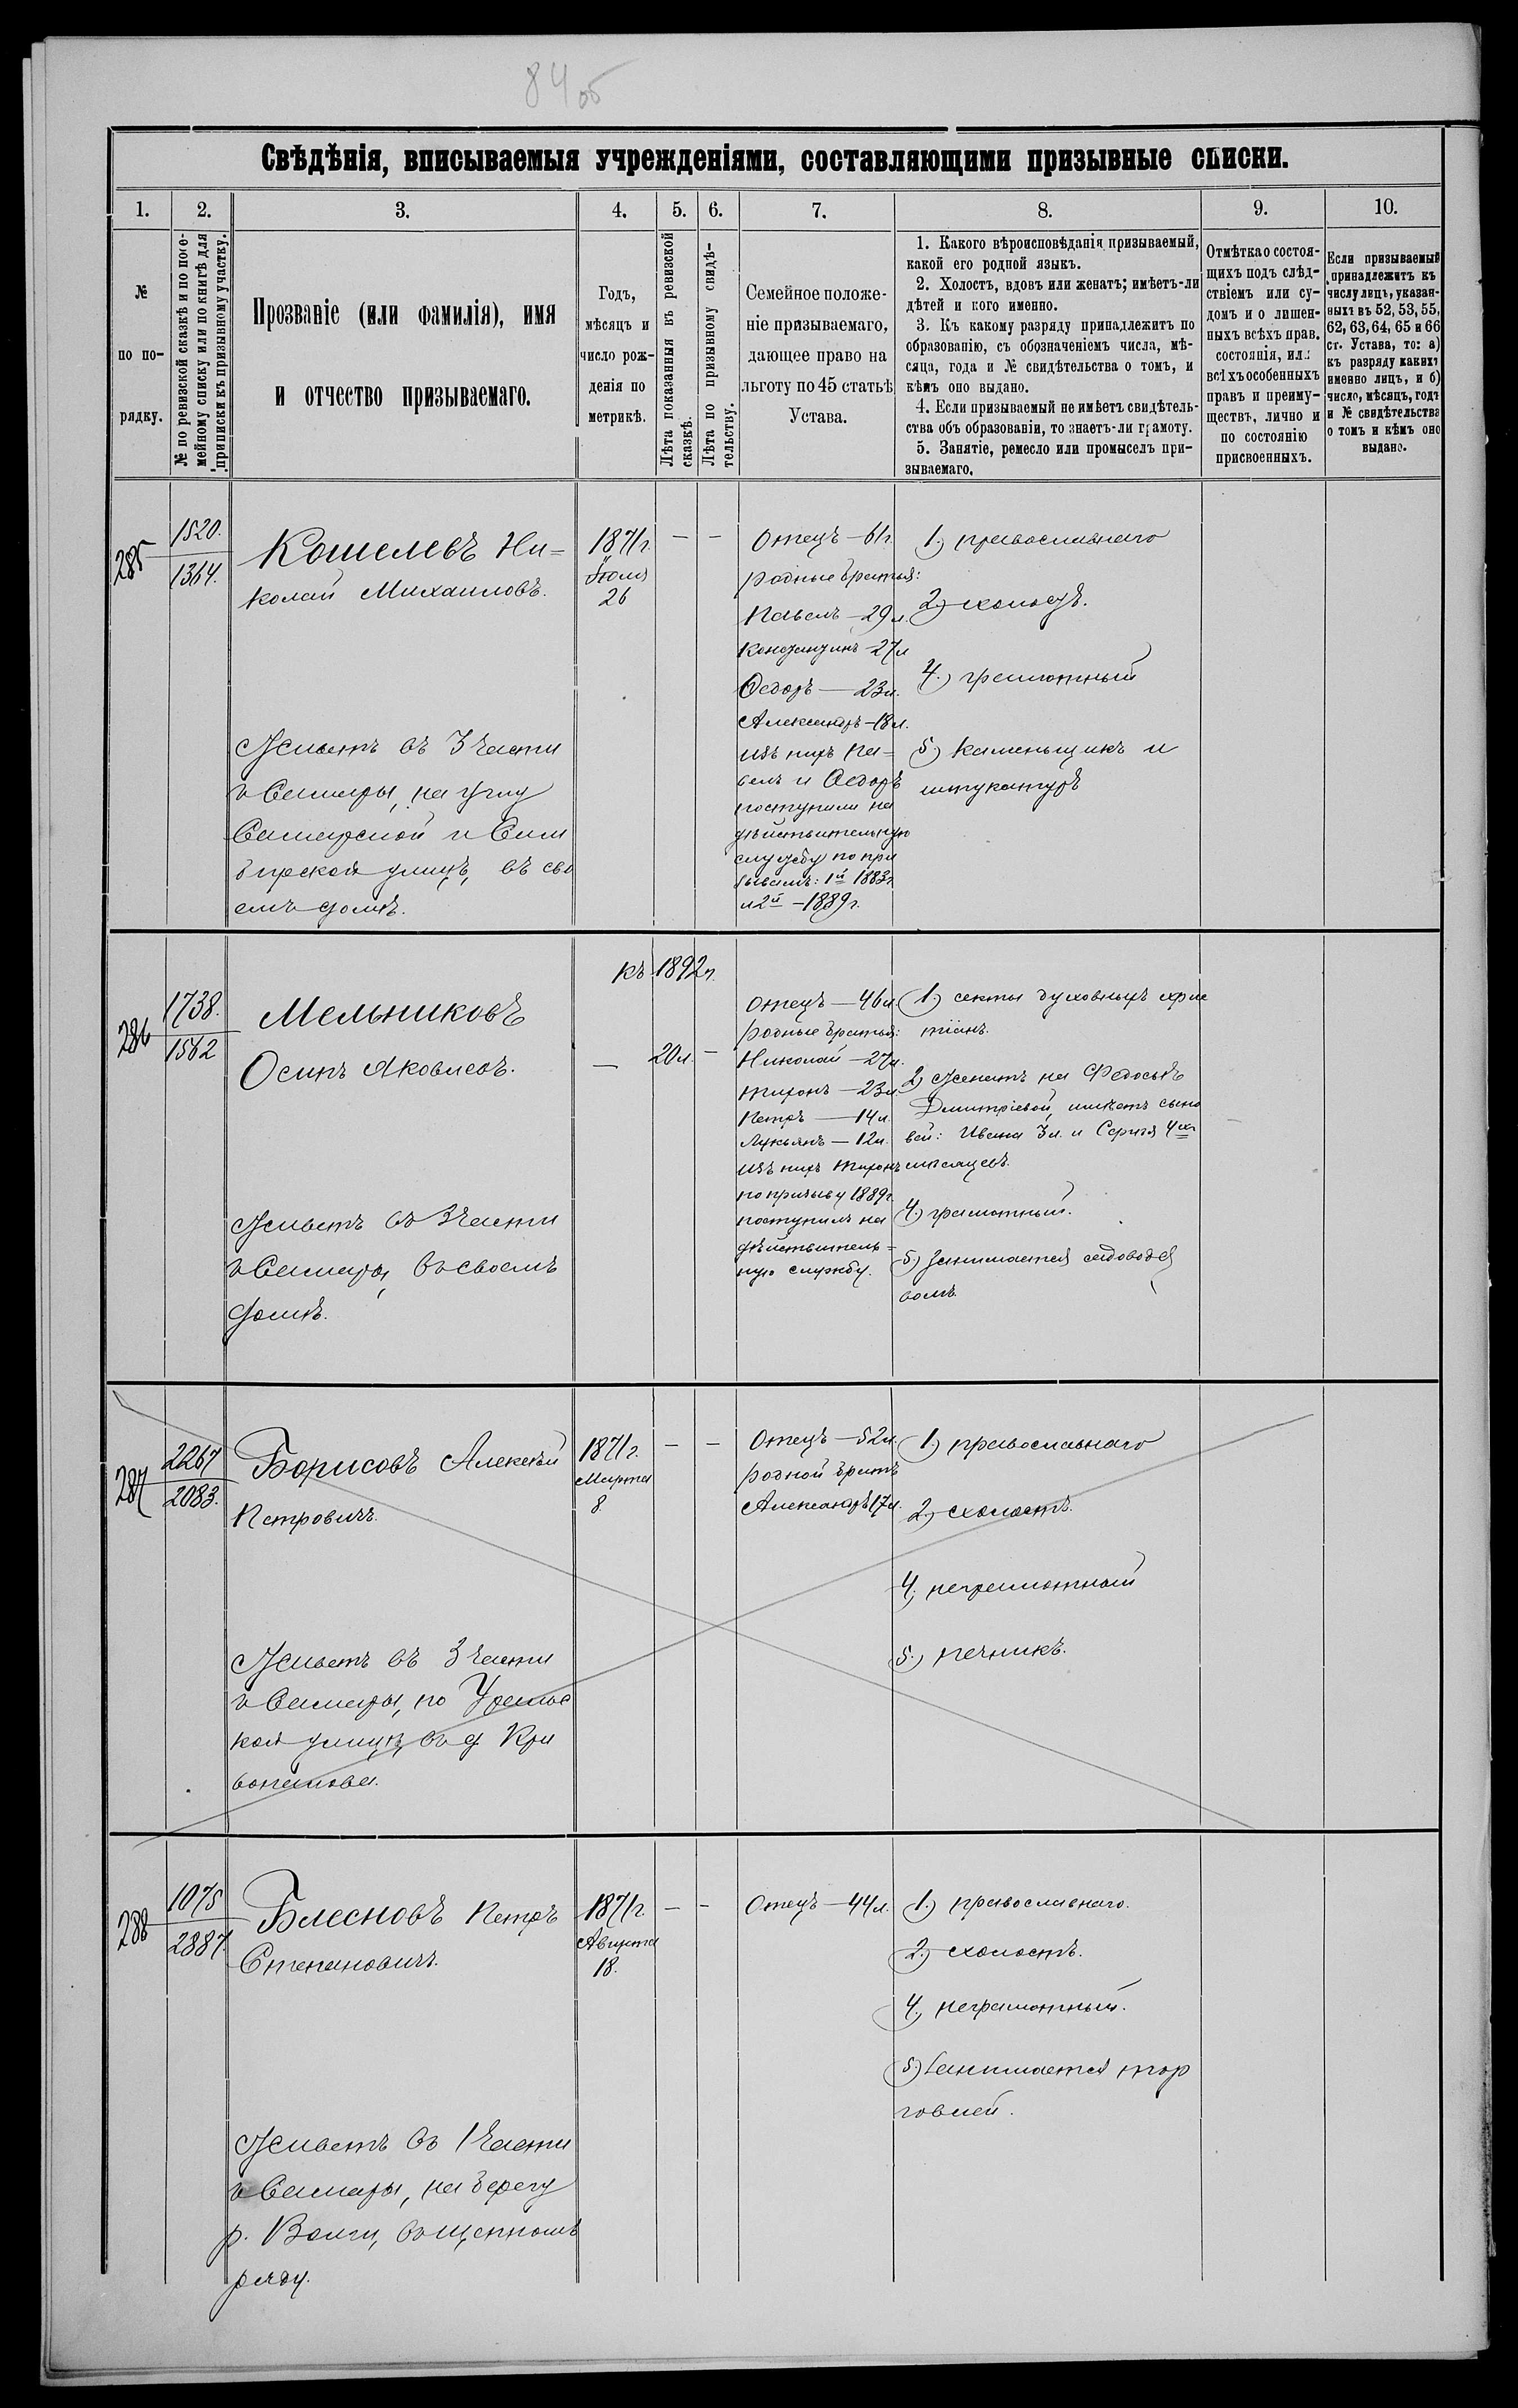 84об
Свѣдѣнія, вписываемыя учрежденіями, составляющими призывные списки.
1. 2. 3. 4. 5. 6. 7. 8. 9. 10.
№
по по-
рядку.
№ по ревизской сказкѣ и по посе-
мейному списку или по книгѣ для
приписки къ призывному участку.
Прозваніе (или фамилія), имя
и отчество призываемаго.
Годъ,
мѣсяцъ и
число рож-
денія по
метрикѣ.
Лѣта показанныя въ ревизской
сказкѣ.
Лѣта по призывному свидѣ-
тельству.
Семейное положе-
ніе призываемаго,
дающее право на
льготу по 45 статьѣ
Устава.
1. Какого вѣроисповѣданія призываемый,
какой его родной языкъ.
2. Холостъ, вдовъ или женатъ; имѣетъ-ли
дѣтей и кого именно.
3. Къ какому разряду принадлежитъ по
образованію, съ обозначеніемъ числа, мѣ-
сяца, года и № свидѣтельства о томъ, и
кѣмъ оно выдано.
4. Если призываемый не имѣетъ свидѣтель-
ства объ образованіи, то знаетъ-ли грамоту.
5. Занятіе, ремесло или промыселъ при-
зываемаго.
Отмѣтка о состоя-
щихъ подъ слѣд-
ствіемъ или су-
домъ и о лишен-
ныхъ всѣхъ прав.
состоянія, или
всѣхъ особенныхъ
правъ и преиму-
ществъ, лично и
по состоянію
присвоенныхъ.
Если призываемый
принадлежитъ къ
числу лицъ, указан-
ныхъ въ 52, 53, 55,
62, 63, 64, 65 и 66
ст. Устава, то: а)
къ разряду какихъ
именно лицъ, и б)
число, мѣсяцъ, годъ
и № свидѣтельства
о томъ и кѣмъ оно
выдано.
285
1520.
1364.
Кошелевъ Ни=
колай Михаиловъ.
Живетъ въ 3 части
г Самары, на углу
Самарской и Сим
бирской улицъ, въ сво
емъ домѣ.
1871г.
Іюля
26
— —
Отецъ — 61г.
родные братья:
Павелъ — 29л.
Константинъ — 27л
Ѳедоръ — 23л.
Александръ — 18л.
изъ нихъ Па=
велъ и Ѳедоръ
поступили на
дѣйствительную
службу по при
зывамъ: 1й 1883г
и 2й — 1889г.
1.) православнаго
2.) холостъ.
4.) грамотный
5.) каменьщикъ и
штукатуръ
286
1738.
1562
Мельниковъ
Осипъ Яковлевъ.
Живетъ въ 3 части
г Самары, въ своемъ
домѣ.
къ 1892г.
— 20л. —
Отецъ — 46л.
родные братья:
Николай — 27л.
Тихонъ — 23л.
Петръ — 14л.
Лукьянъ — 12л.
изъ нихъ Тихонъ
по призыву 1889г.
поступилъ на
дѣйствитель=
ную службу.
1.) секты духовныхъ хрис
тіанъ.
2.) женатъ на Федосьѣ
Дмитріевой, имѣетъ сыно
вей: Ивана 3л. и Сергѣя 4хъ
мѣсяцевъ.
4.) грамотный.
5.) занимается садоводст
вомъ
—
287
2267
2083.
Борисовъ Алексѣй
Петровичъ.
Живетъ въ 3 части
г Самары, по Уральс
кой улицѣ, въ д Кри
вопалова.
1871г.
Марта
8
— —
Отецъ — 52л.
родной братъ
Александръ 17л.
1.) православнаго
2.) холостъ.
4.) неграмотный
5.) печникъ.
288
1075
2887.
Блесновъ Петръ
Степановичъ.
Живетъ въ 1 части
г Самары, на берегу
р. Волги, въ щепномъ
ряду.
1871г.
Августа
18.
— —
Отецъ — 44л.
1.) православнаго.
2.) холостъ.
4.) неграмотный.
5.) занимается тор
говлей.